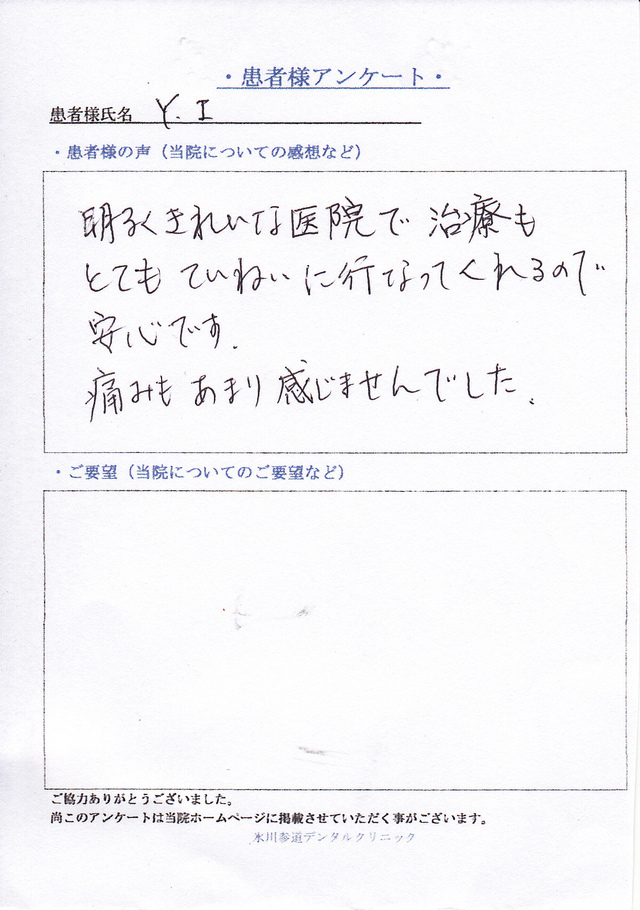 ・患者様アンケート・
患者様氏名 Y.I
・患者様の声（当院についての感想など）
明るくきれいな医院で 治療も
とても ていねいに行なってくれるので
安心です.
痛みも あまり 感じませんでした.
・ご要望（当院についてのご要望など）
ご協力ありがとうございました。
尚このアンケートは当院ホームページに掲載させていただく事がございます。
氷川参道デンタルクリニック